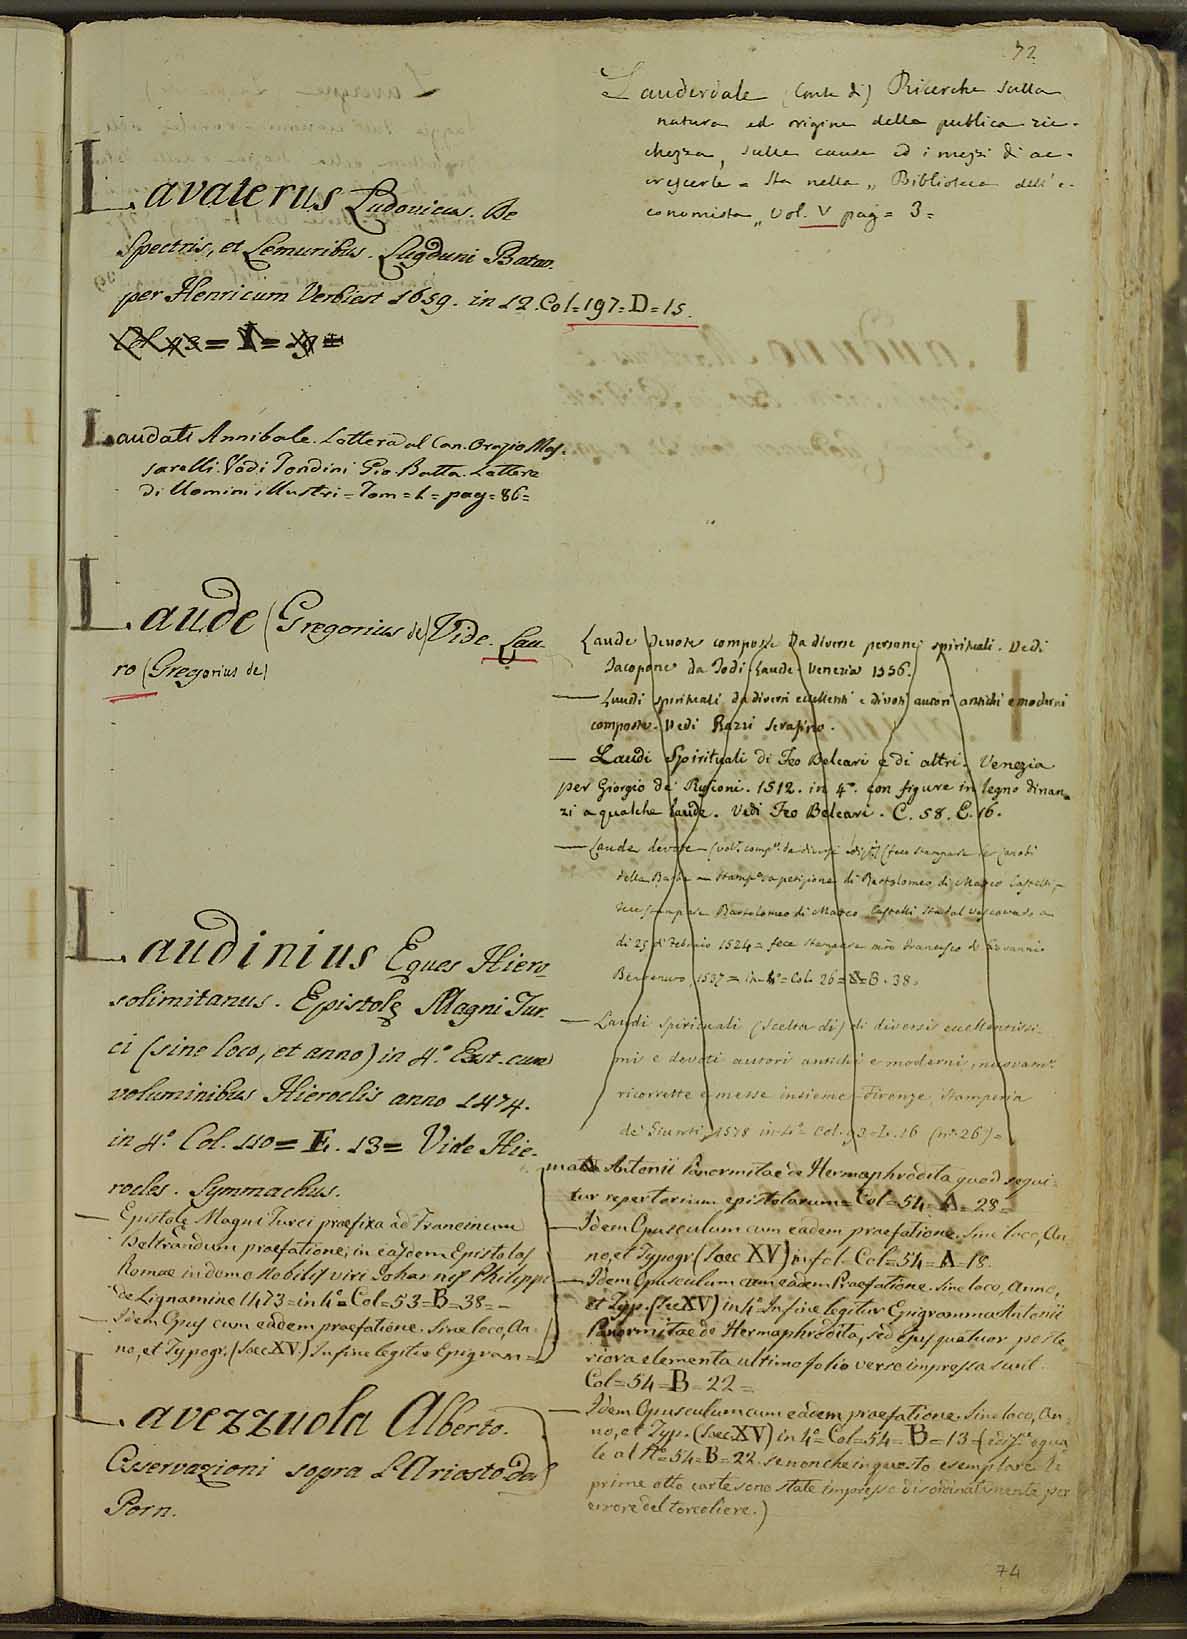 72
Lavaterus Ludovicus. De
Spectris, et Lemuribus. Lugduni Batav.
per Henricum Verbiest 1659. in 12. Col=197=D=15.
Laudati Annibale. Lettera al Can. Orazio Mas-
sarelli. Vedi Tondini Gio. Batta. Lettere
di Uomini illustri = Tom=1= pag=86=
Laude (Gregorius de) Vide. Lau-
ro (Gregorius de)
Laudinius Eques Hiero
solimitanus. Epistolę Magni Tur-
ci (sine loco, et anno) in 4.º Exst. cum
voluminibus Hieroclis anno 1474.
in 4.º Col. 110=E. 13= Vide Hie-
rocles. Symmachus.
— Epistolę Magni Turci praefixa ad Francinum
Beltrandum praefatione, in easdem Epistolas
Romae in domo Nobilis viri Johannis Philippi
de Lignamine 1473=in 4º=Col=53=B=38=
— Idem Opus cum eadem praefatione. Sine loco, An-
no, et Typogr. (Saec. XV.) In fine legitur Epigram=
Lavezzuola Alberto.
Osservazioni sopra L'Ariosto dal
Porn.
Lauderdale (Conte di) Ricerche sulla
natura ed origine della publica ric-
chezza, sulle cause ed i mezzi di ac-
crescerle = Sta nella „ Biblioteca dell'e-
conomista „ Vol. V pag= 3=
Laude devote composte da diverse persone spirituali. Vedi
Jacopone da Todi. Laude. Venezia 1556.
— Laudi spirituali da diversi eccellenti e divoti autori antichi e moderni
composte. Vedi Razzi Serafino.
— Laudi Spirituali di Feo Belcari e di altri. Venezia
per Giorgio de' Rusconi. 1512. in 4º. con figure in legno dinan-
zi a qualche laude. Vedi Feo Belcari. C. 58. E. 16.
— Laude devote
della Barba — a petizione di Bartolomeo di Matteo Castelli,
Bartolomeo di Matteo Castelli
di 25 di Febraio 1524= fece stampare Francesco di Giovanni
Benvenuto, 1537= in 4º= Col. 26= B. 38.
— Laudi spirituali (scelta di) di diversi eccellentissi-
mi e devoti autori antichi e moderni, nuovamte
ricorrette e messe insieme. Firenze, Stamperia
de' Giunti, 1578 in 4º= Col. 93=L. 16 (nº 26)=
mata Antonii Panormitae de Hermaphrodita quod sequi-
tur repertorium epistolarum= Col=54=A=28=
— Idem Opusculum cum eadem praefatione. Sine loco, An-
no, et Typogr. (Saec. XV) in fol= Col=54=A=18.
— Idem Opusculum cum eadem Praefatione. Sine loco, Anno,
et Typ. (Sec XV) in 4º In fine legitur Epigramma Antonii
Panormitae de Hermaphrodita, sed ejus quatuor poste-
riora elementa ultimo folio verso impressa sunt
Col=54=B=22=
— Idem Opusculum cum eadem praefatione. Sine loco, An-
no, et Typ. (Saec. XV) in 4º=Col=54=B=13= (edizne egua-
le al Nº=54=B=22. se non che in questo esemplare le
prime otto carte sono state impresse disordinatamente per
errore del torcoliere.)
74